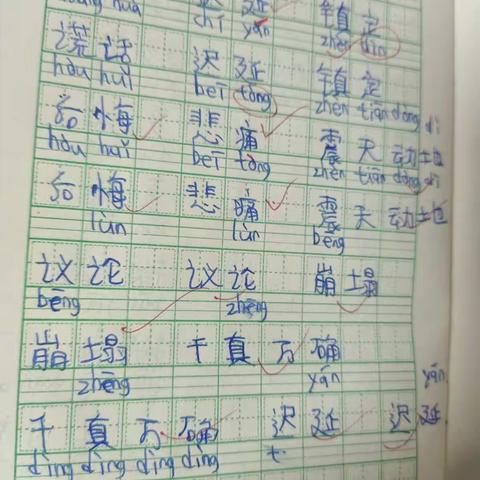 chí yán
谎话 迟延 镇定
hòu huǐ bēi tòng zhèn tiān dòng dì
后悔 悲痛 震天动地
hòu huǐ bēi tòng zhèn tiān dòng dì
后悔 悲痛 震天动地
lùn lùn bēng
议论 议论 崩塌
bēng zhēng
崩塌 千真万确
zhēng yán yán
千真万确 迟延 迟延
dìng dìng dìng dìng